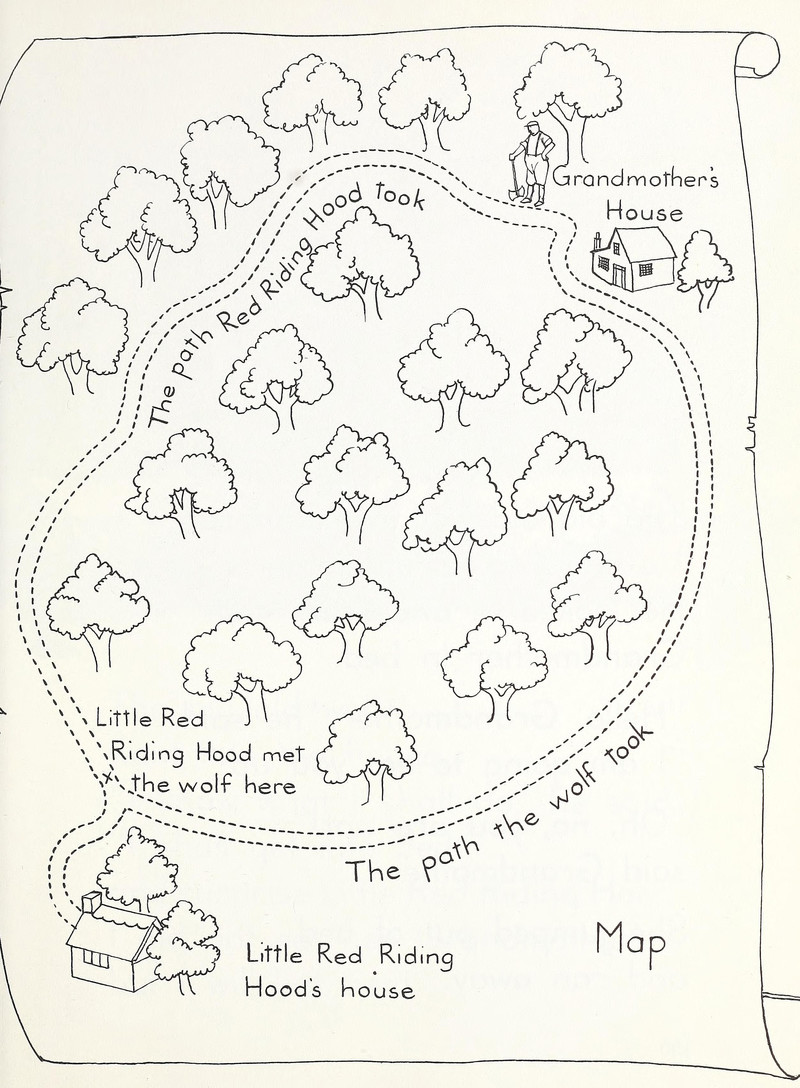 Grandmother's
House
The path Red Riding Hood took
Little Red
Riding Hood met
the wolf here
The path the wolf took
Map
Little Red Riding
Hood's house